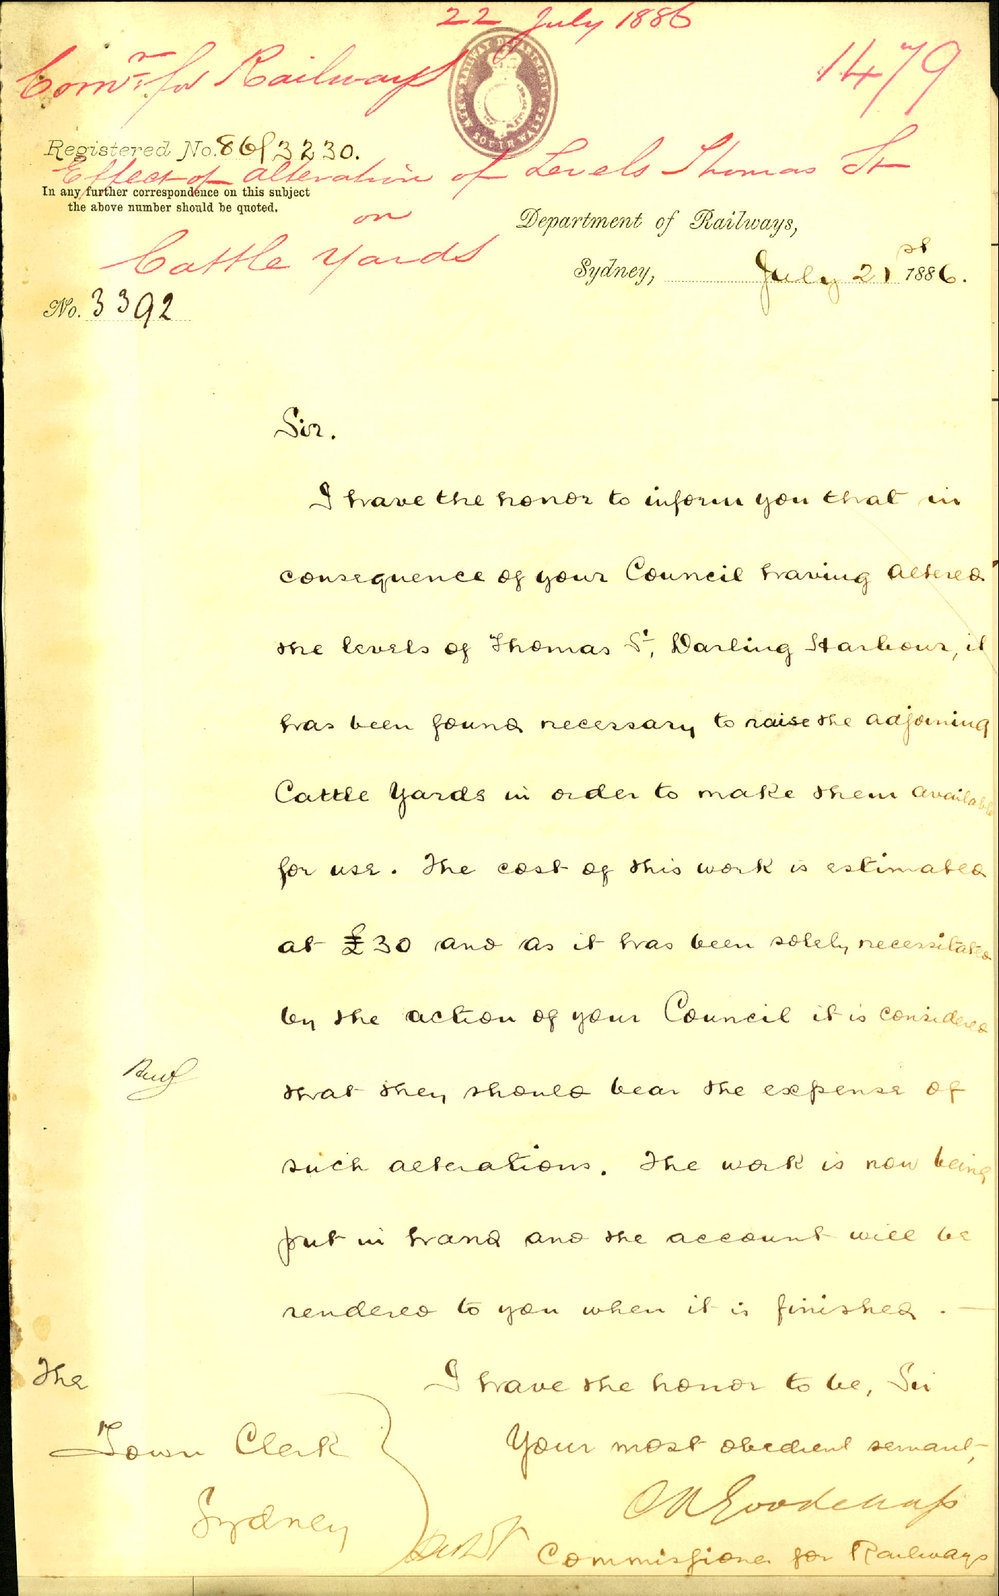 22 July 1886
Comr. for Railways
1479
RAILWAY DEPARTMENT
NEW SOUTH WALES
Registered No. 86/3230.
Effect of alteration of Levels Thomas St
In any further correspondence on this subject
the above number should be quoted.
on
Department of Railways,
Cattle Yards
Sydney, July 21st 1886.
No. 3392
Sir.
I have the honor to inform you that in
consequence of your Council having altered
the levels of Thomas St, Darling Harbour, it
has been found necessary to raise the adjoining
Cattle Yards in order to make them available
for use. The cost of this work is estimated
at £30 and as it has been solely necessitated
by the action of your Council it is considered
that they should bear the expense of
such alterations. The work is now being
put in hand and the account will be
rendered to you when it is finished. —
The
I have the honor to be, Sir
Town Clerk
Your most obedient servant,
Sydney
Ch A Goodchap
Commissioner for Railways